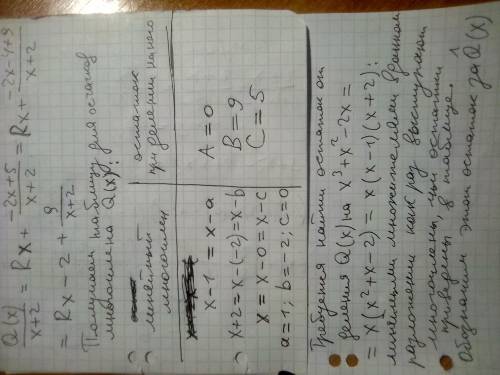 Q(x)/(x+2) = Rx + (-2x+5)/(x+2) = Rx + (-2x-4+9)/(x+2)
= Rx - 2 + 9/(x+2)
Получаем таблицу для остатков
многочлена Q(x):
линейный многочлен | остаток при делении на него
x-1 = x-a | A=0
x+2=x-(-2)=x-b | B=9
x = x-0 = x-c | C=5
a=1; b=-2; c=0
Требуется найти остаток от
деления Q(x) на x³+x²-2x=
=x(x²+x-2)=x(x-1)(x+2):
линейными множителями в данном
разложении как раз выступают
многочлены, чьи остатки
приведены в таблице.
Обозначим этот остаток за Q₁(x)